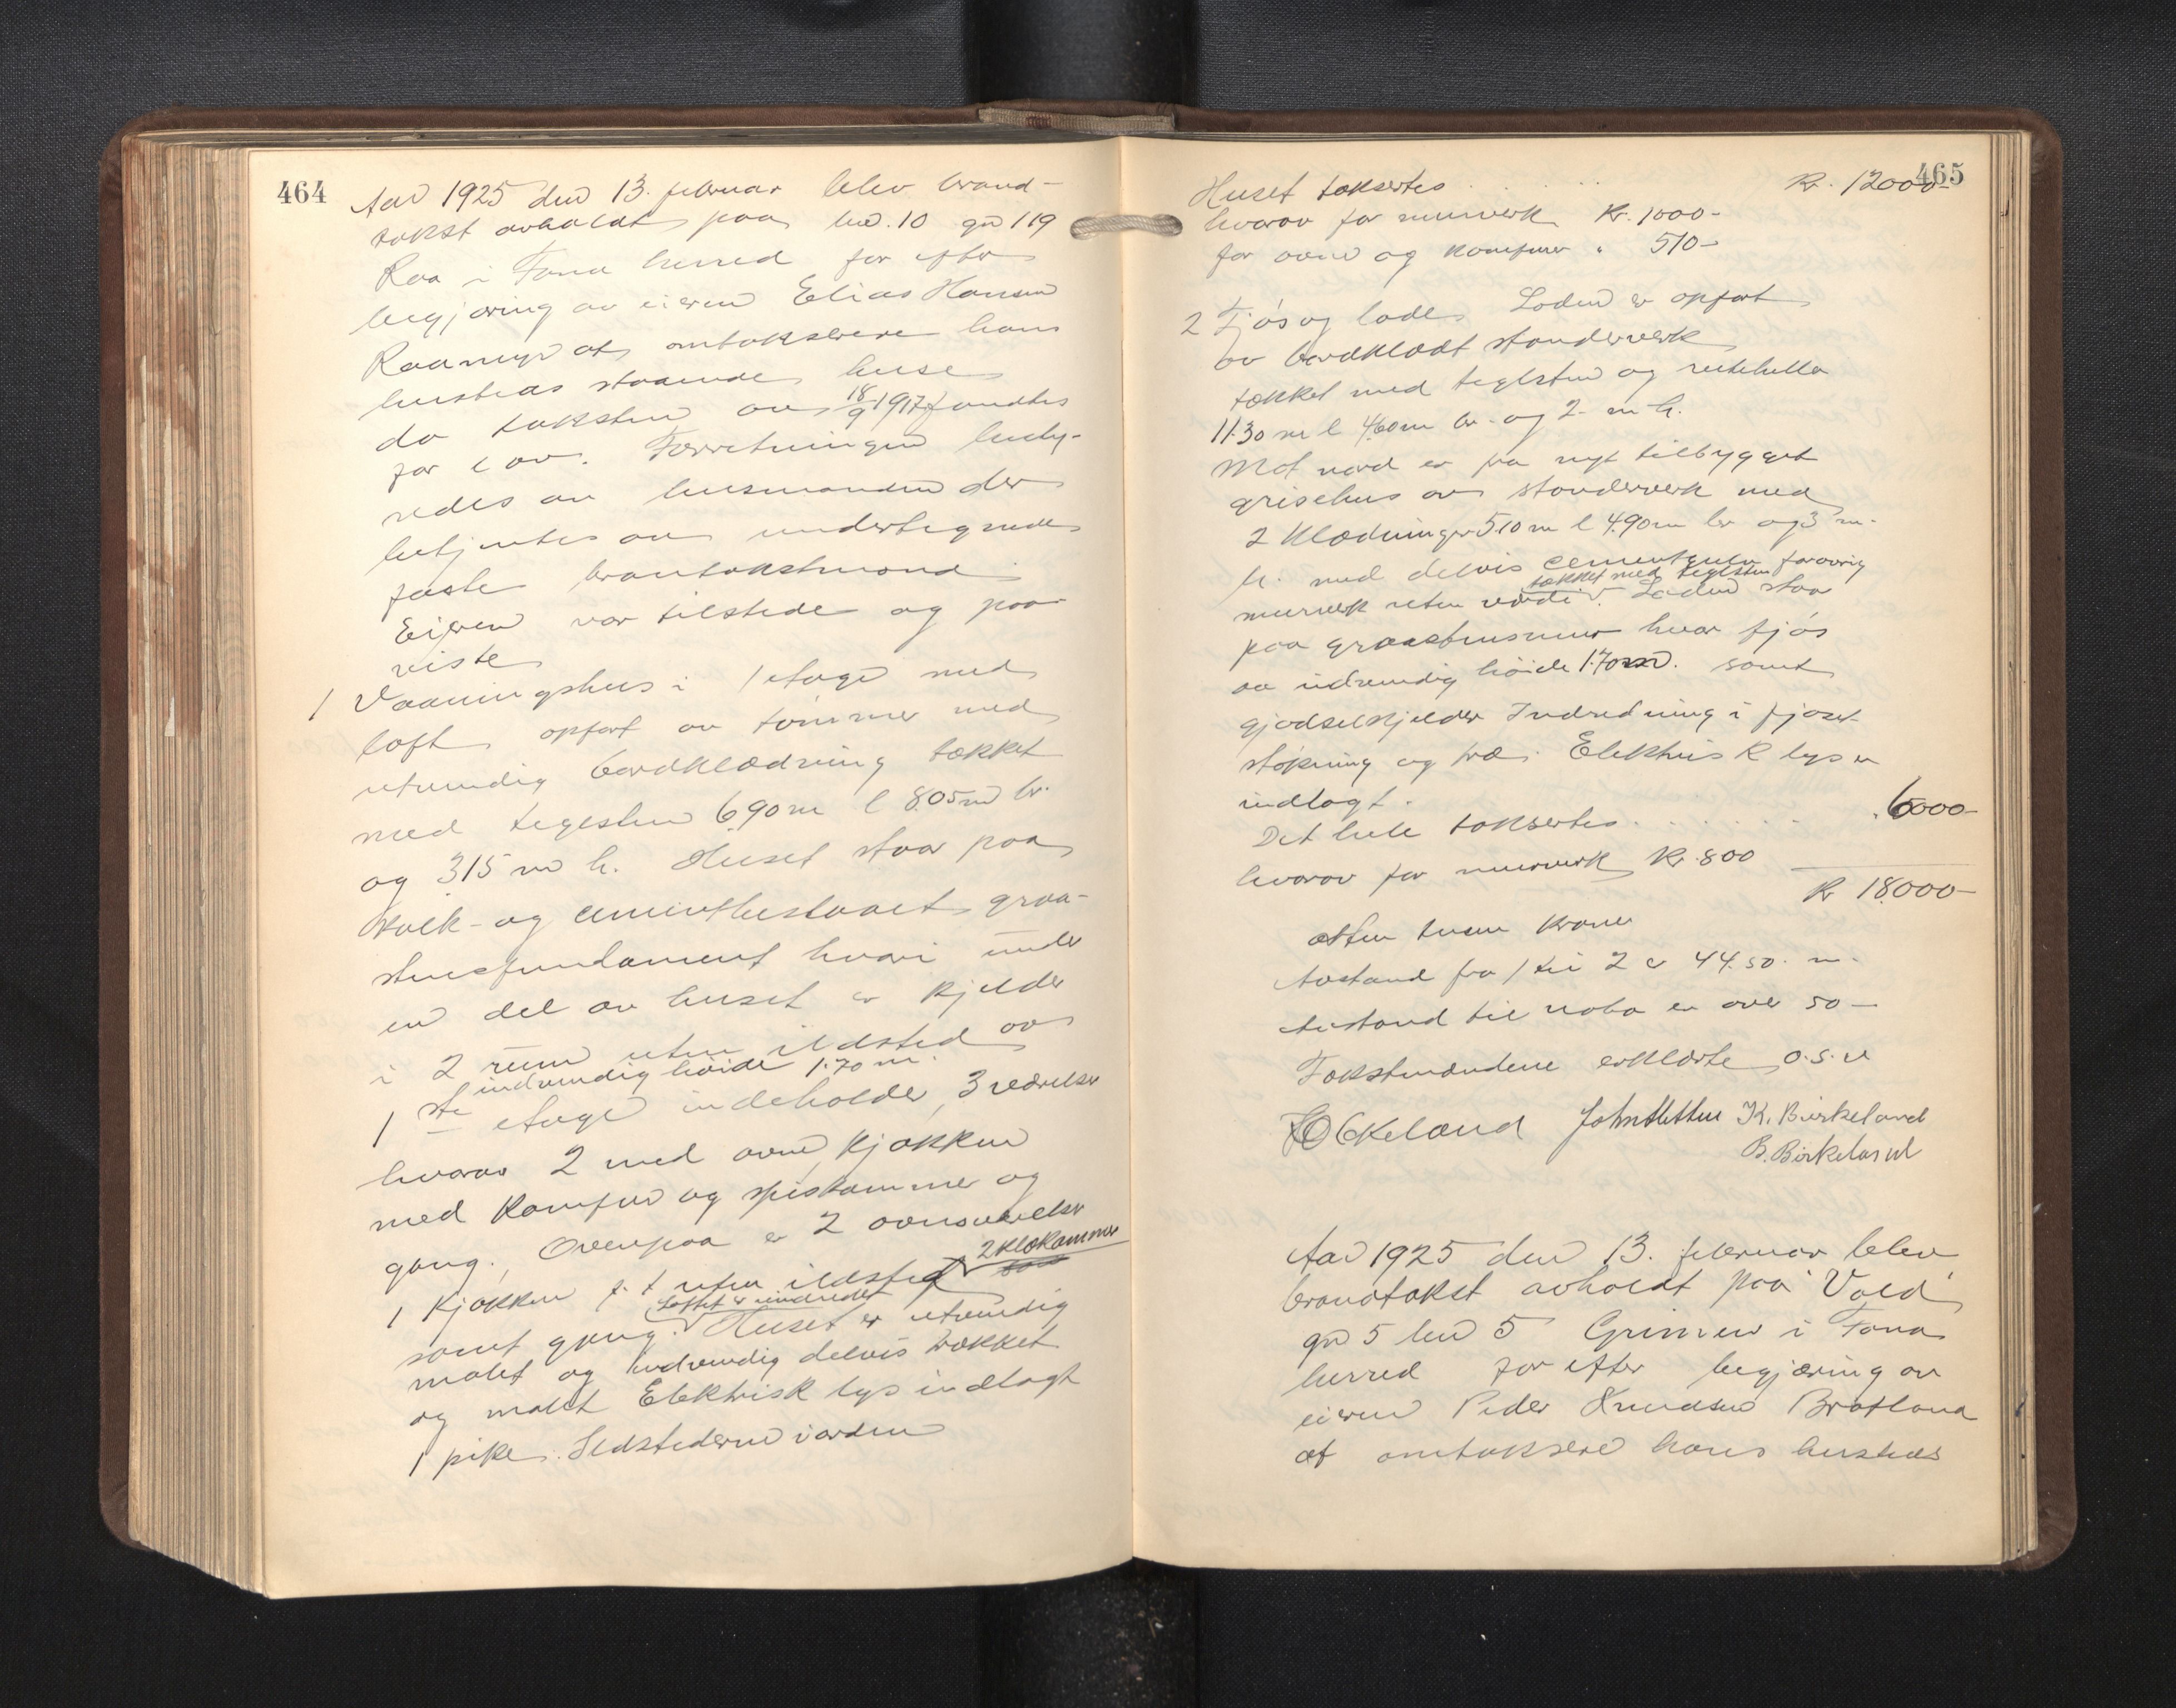 464
Aar 1925 den 13. februar blev brand-
takst avholdt paa bn. 10 gn 119
Raa i Fana herred for efter
begjæring av eieren Elias Hansen
Raamyr at omtaksere hans
hersteds staaende huse
da taksten av 18/9 1917 fandtes
for lav. Forretningen
redes av lensmanden der
betjentes av undertegnede
faste brantakstmænd
Eieren var tilstede og paa-
viste
1 Vaaningshus i 1 etage med
loft opført av tømmer med
utvendig bordklædning tækket
med teglsten 6.90 m l 8.05 m br.
og 3.15 m h. Huset staar paa
kalk- og cement graa-
stensfundament hvori under
en del av huset er kjelder
i 2 rum uten ildsted av
indvendig høide 1.70 m.
1ste etage indeholder 3 værelser
hvorav 2 med ovne, kjøkken
med komfur og spiskammer og
gang. Ovenpaa er 2 ovnsværelser
2 klækammer
1 kjøkken p. t uten ildsted
Loftet er indredet
samt gang. Huset er utvendig
malet og indvendig delvis trækket
og malet Elektrisk lys indlagt
1 pipe. Ildstederne i orden
465
Huset taksertes . . . . . Kr. 12000-
hvorav for murverk Kr. 1000-
for ovne og komfurer " 510-
2 Fjøs og lade. Laden er opført
av bordklædt stenderverk
tækket med teglsten og rutehelle
11.30 m l 4.60 m br. og 2- m h.
Mot nord er paa nyt tilbygget
grisehus av stenderverk med
2 klædninger 5.10 m l 4.90 m br og 3 m.
h. med delvis cementgulv forøvrig
tækket med teglsten
murverk uten værdi. Laden staar
paa graastensmur hvor fjøs
av indvendig høide 1.70 m. samt
gjødselkjelder Indredning i fjøset
støpning og træ. Elektrisk lys er
indlagt.
Det hele taksertes . . . . . . 6000-
hvorav for murverk Kr. 800
Kr 18.000-
atten tusen kroner
Avstand fra 1 til 2 er 44.50. m.
Avstand til nabo er over 50 —
Takstmændene erklærte o.s.v
Økeland John K. Birkeland
B. Birkeland
Aar 1925 den 13. februar blev
brandtakst avholdt paa Vold
gn 5 bn 5 Grimen i Fana
herred for efter begjæring av
eieren Peder Knudsen Bratland
at omtaksere hans hersteds